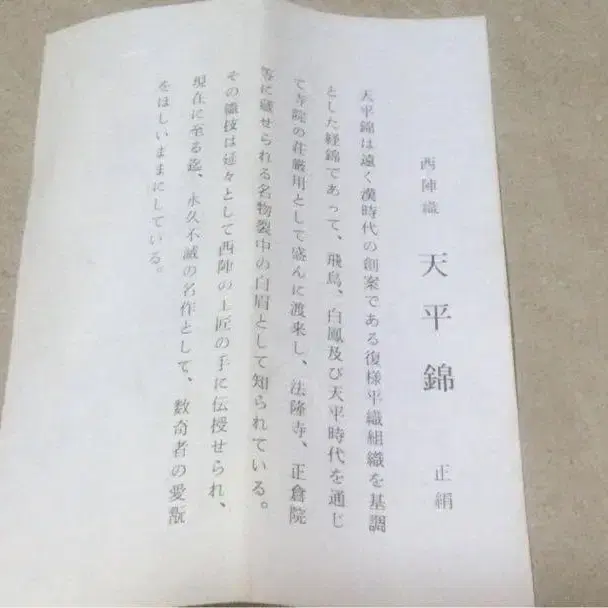 西陣織 天平錦 正絹
天平錦は遠く漢時代の創案である復様平織組織を基調
とした経錦であって、飛鳥、白鳳及び天平時代を通じ
て寺院の荘厳用として盛んに渡来し、法隆寺、正倉院
等に蔵せられる名物裂中の白眉として知られている。
その織技は延々として西陣の工匠の手に伝授せられ、
現在に至る迄、永久不滅の名作として、数奇者の愛翫
をほしいままにしている。